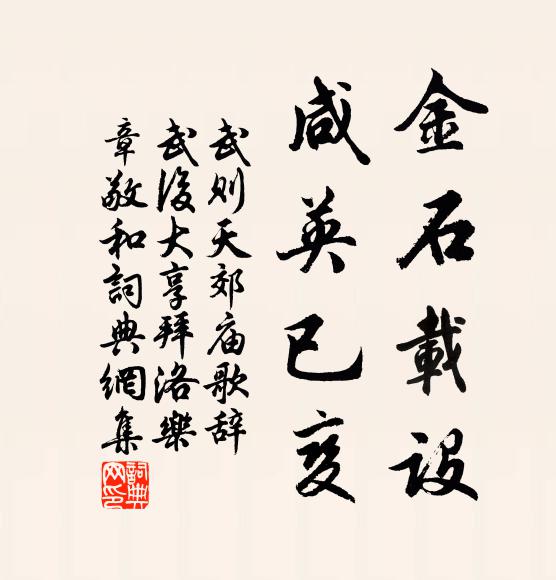 金石載設
咸英已变
武则天郊庙歌辞
武後大享拜洛樂
章敬和詞典網集
詞典
网印